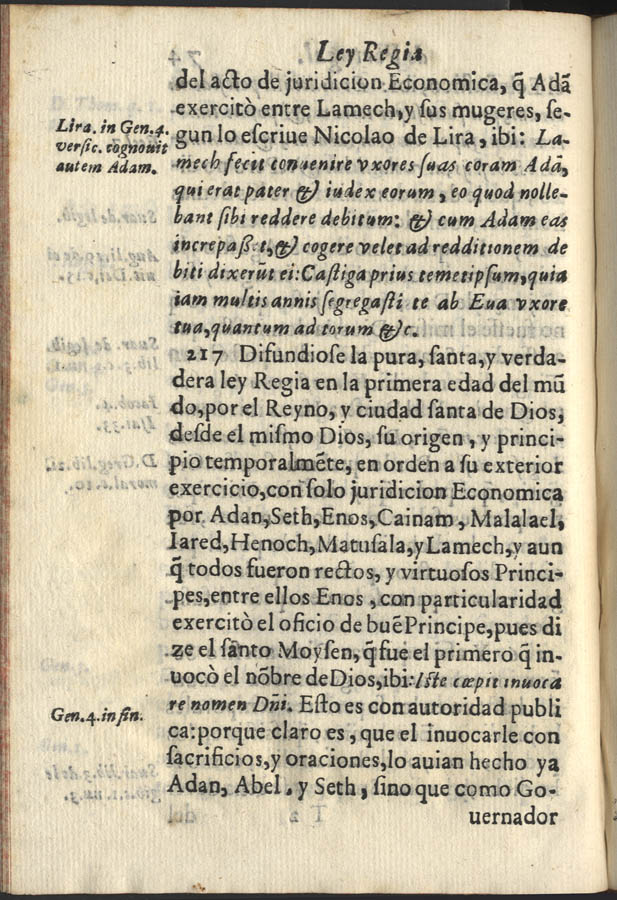 Ley Regia
del acto de juridicion Economica, q̃ Adã
exercitò entre Lamech, y sus mugeres, se-
gun lo escriue Nicolao de Lira, ibi: La-
mech fecit conuenire vxores suas coram Adã,
qui erat pater & iudex eorum, eo quod nolle-
bant sibi reddere debitum: & cum Adam eas
increpaßet, & cogere velet ad redditionem de
biti dixerũt ei: Castiga prius temetipsum, quia
iam multis annis segregasti te ab Eua vxore
tua, quantum ad torum &c.
Lira. in Gen. 4.
versic. cognouit
autem Adam.
217 Difundiose la pura, santa, y verda-
dera ley Regia en la primera edad del mũ
do, por el Reyno, y ciudad santa de Dios,
desde el mismo Dios, su origen, y princi-
pio temporalmẽte, en orden a su exterior
exercicio, con solo juridicion Economica
por Adan, Seth, Enos, Cainam, Malalael,
Iared, Henoch, Matusala, y Lamech, y aun
q̃ todos fueron rectos, y virtuosos Princi-
pes, entre ellos Enos, con particularidad
exercitò el oficio de buẽ Principe, pues di
ze el santo Moysen, q̃ fue el primero q̃ in-
uocò el nõbre de Dios, ibi: Iste cœpit inuoca
re nomen Dñi. Esto es con autoridad publi
ca: porque claro es, que el inuocarle con
sacrificios, y oraciones, lo auian hecho ya
Adan, Abel, y Seth, sino que como Go-
uernador
Gen. 4. in fin.